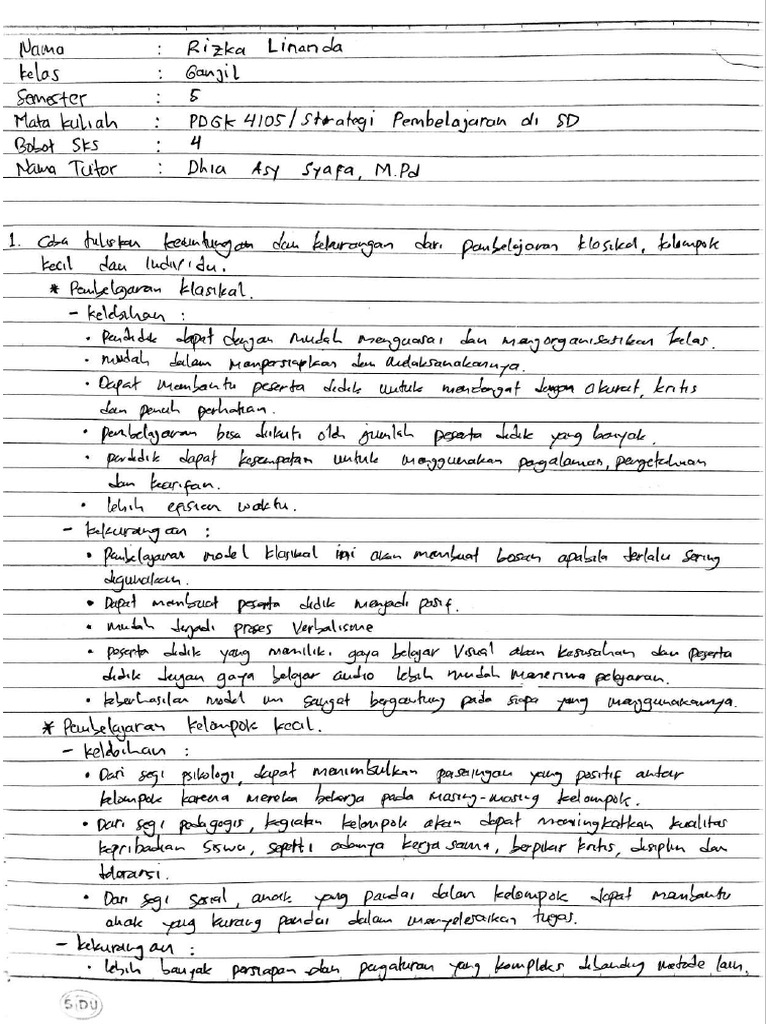 Nama : Rizka Linanda
Kelas : Ganjil
Semester : 5
Mata kuliah : PDGK 4105 / Strategi Pembelajaran di SD
Bobot SKS : 4
Nama Tutor : Dhia Asy Syafa, M.Pd
1. Coba tuliskan keuntungan dan kekurangan dari pembelajaran klasikal, kelompok
kecil dan individu.
* Pembelajaran klasikal.
- kelebihan :
• Pendidik dapat dengan mudah menguasai dan mengorganisasikan kelas.
• mudah dalam mempersiapkan dan melaksanakannya.
• Dapat membantu peserta didik untuk mendengat dengan akurat, kritis
dan penuh perhatian.
• pembelajaran bisa diikuti oleh jumlah peserta didik yang banyak.
• pendidik dapat kesempatan untuk menggunakan pengalaman, pengetahuan
dan kearifan.
• lebih efisien waktu.
- kekurangan :
• Pembelajaran model klasikal ini akan membuat bosan apabila terlalu sering
digunakan.
• Dapat membuat peserta didik menjadi pasif.
• mudah terjadi proses Verbalisme
• peserta didik yang memiliki gaya belajar Visual akan kesusahan dan peserta
didik dengan gaya belajar audio lebih mudah menerima pelajaran.
• keberhasilan model ini sangat bergantung pada siapa yang menggunakannya.
* Pembelajaran kelompok kecil.
- kelebihan :
• Dari segi psikologi, dapat menimbulkan persaingan yang positif antar
kelompok karena mereka bekerja pada masing-masing kelompok.
• Dari segi pedagogis, kegiatan kelompok akan dapat meningkatkan kualitas
kepribadian siswa, seperti adanya kerja sama, berpikir kritis, disiplin dan
toleransi.
• Dari segi sosial, anak yang pandai dalam kelompok dapat membantu
anak yang kurang pandai dalam menyelesaikan tugas.
- kekurangan :
• lebih banyak persiapan dan pengaturan yang kompleks dibanding metode lain.
SiDU